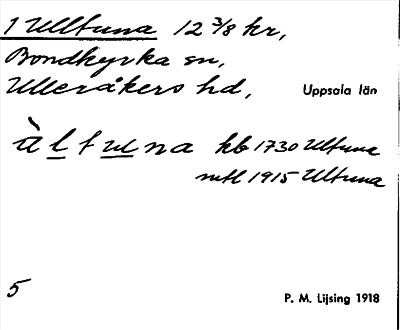 1 Ulltuna 12 3/8 hr,
Bondkyrka sn,
Ulleråkers hd, Uppsala län
àltuna kb 1730 Ultuna
mtl 1915 Ultuna
5 P. M. Lijsing 1918